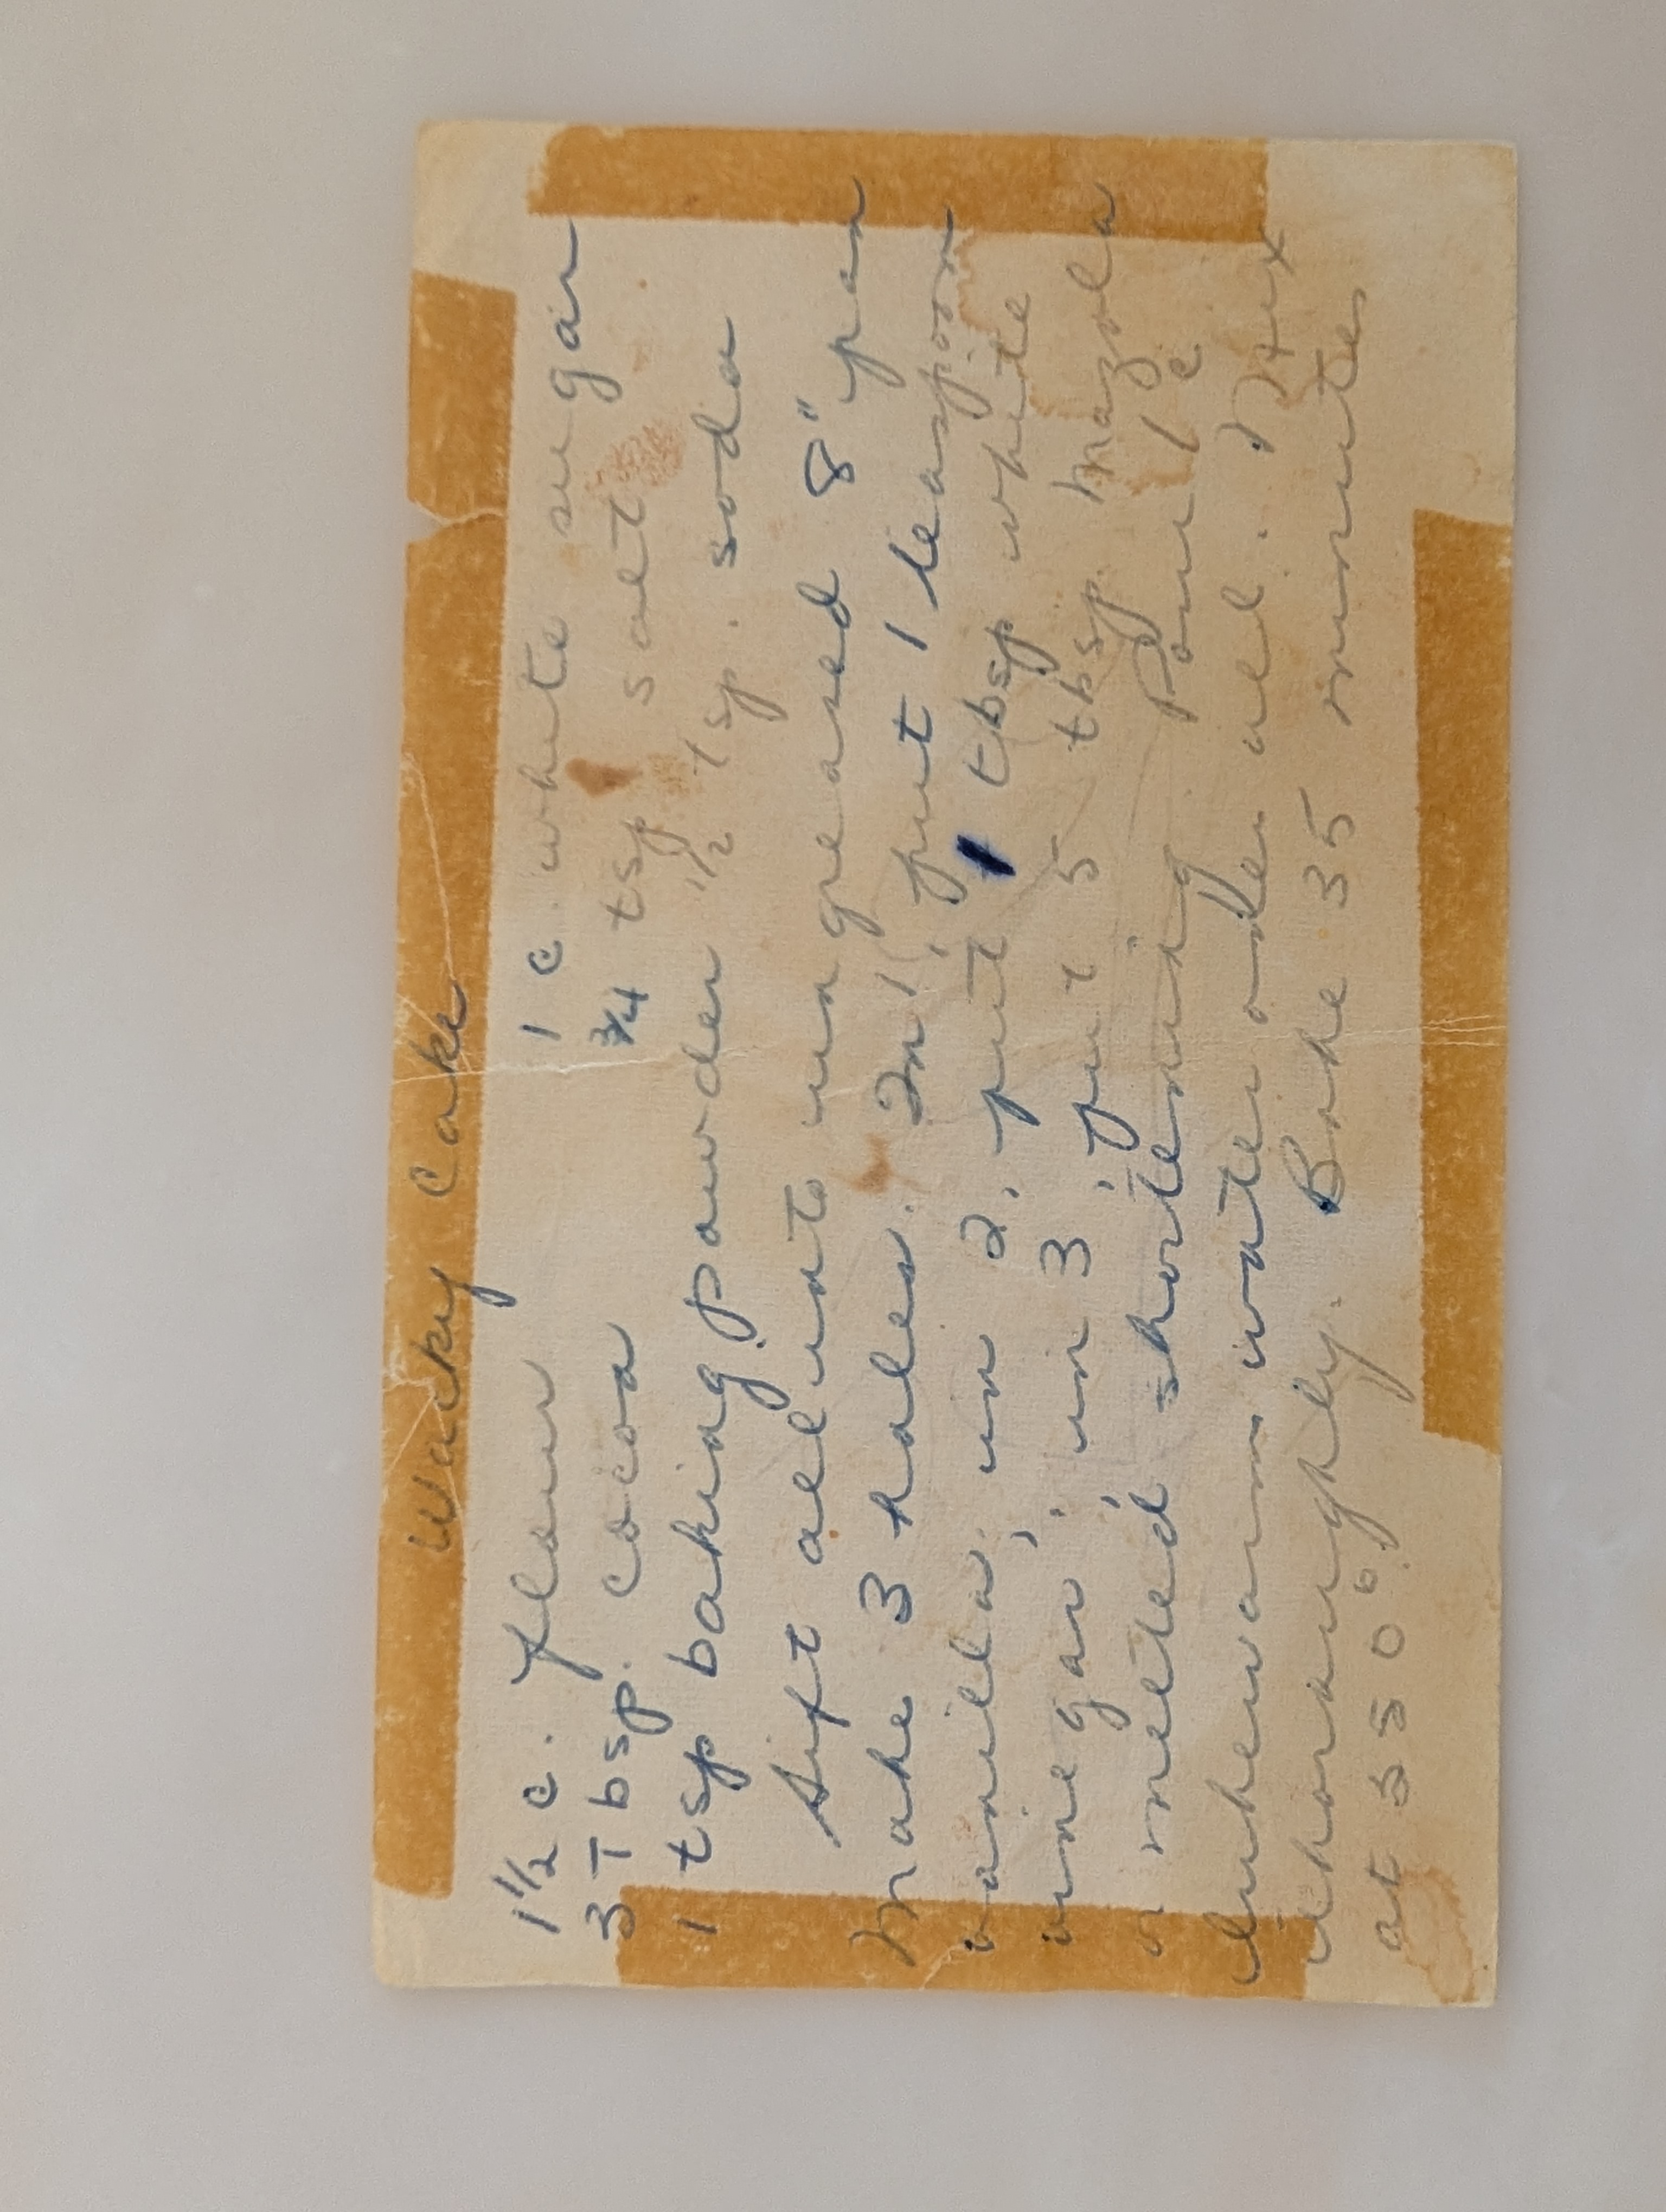 Wacky Cake
1 1/2 c. flour 1 c. white sugar
3 Tbsp. cocoa 3/4 tsp salt
1 tsp baking powder 1/2 tsp. soda
Sift all into ungreased 8" pan
Make 3 holes. In 1, put 1 teaspoon
vanilla, in 2, put 1 tbsp white
vinegar, in 3, put 5 tbsp. Mazola
or melted shortening. Pour 1 c
lukewarm water over all. Mix
thoroughly. Bake 35 minutes
at 350°.